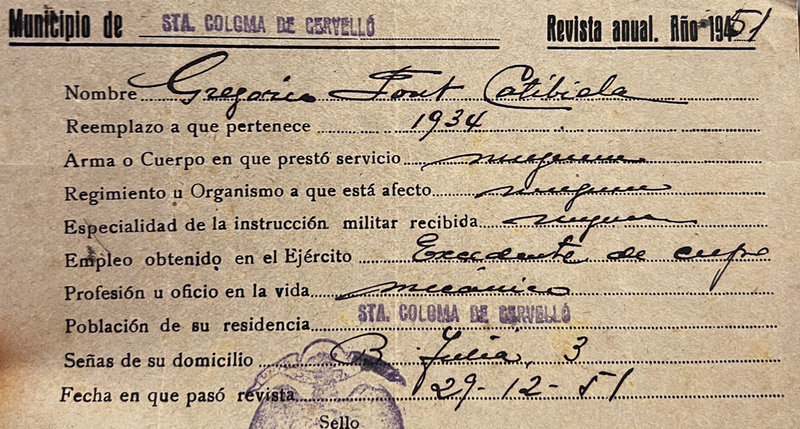 Municipio de STA. COLOMA DE CERVELLÓ Revista anual. Año 1951
Nombre Gregorio Font Catibiela
Reemplazo a que pertenece 1934
Arma o Cuerpo en que prestó servicio ninguna
Regimiento u Organismo a que está afecto ninguno
Especialidad de la instrucción militar recibida ninguna
Empleo obtenido en el Ejército Excedente de cupo
Profesión u oficio en la vida mecánico
Población de su residencia STA. COLOMA DE CERVELLÓ
Señas de su domicilio B. Juliá, 3
Fecha en que pasó revista 29-12-51
Sello